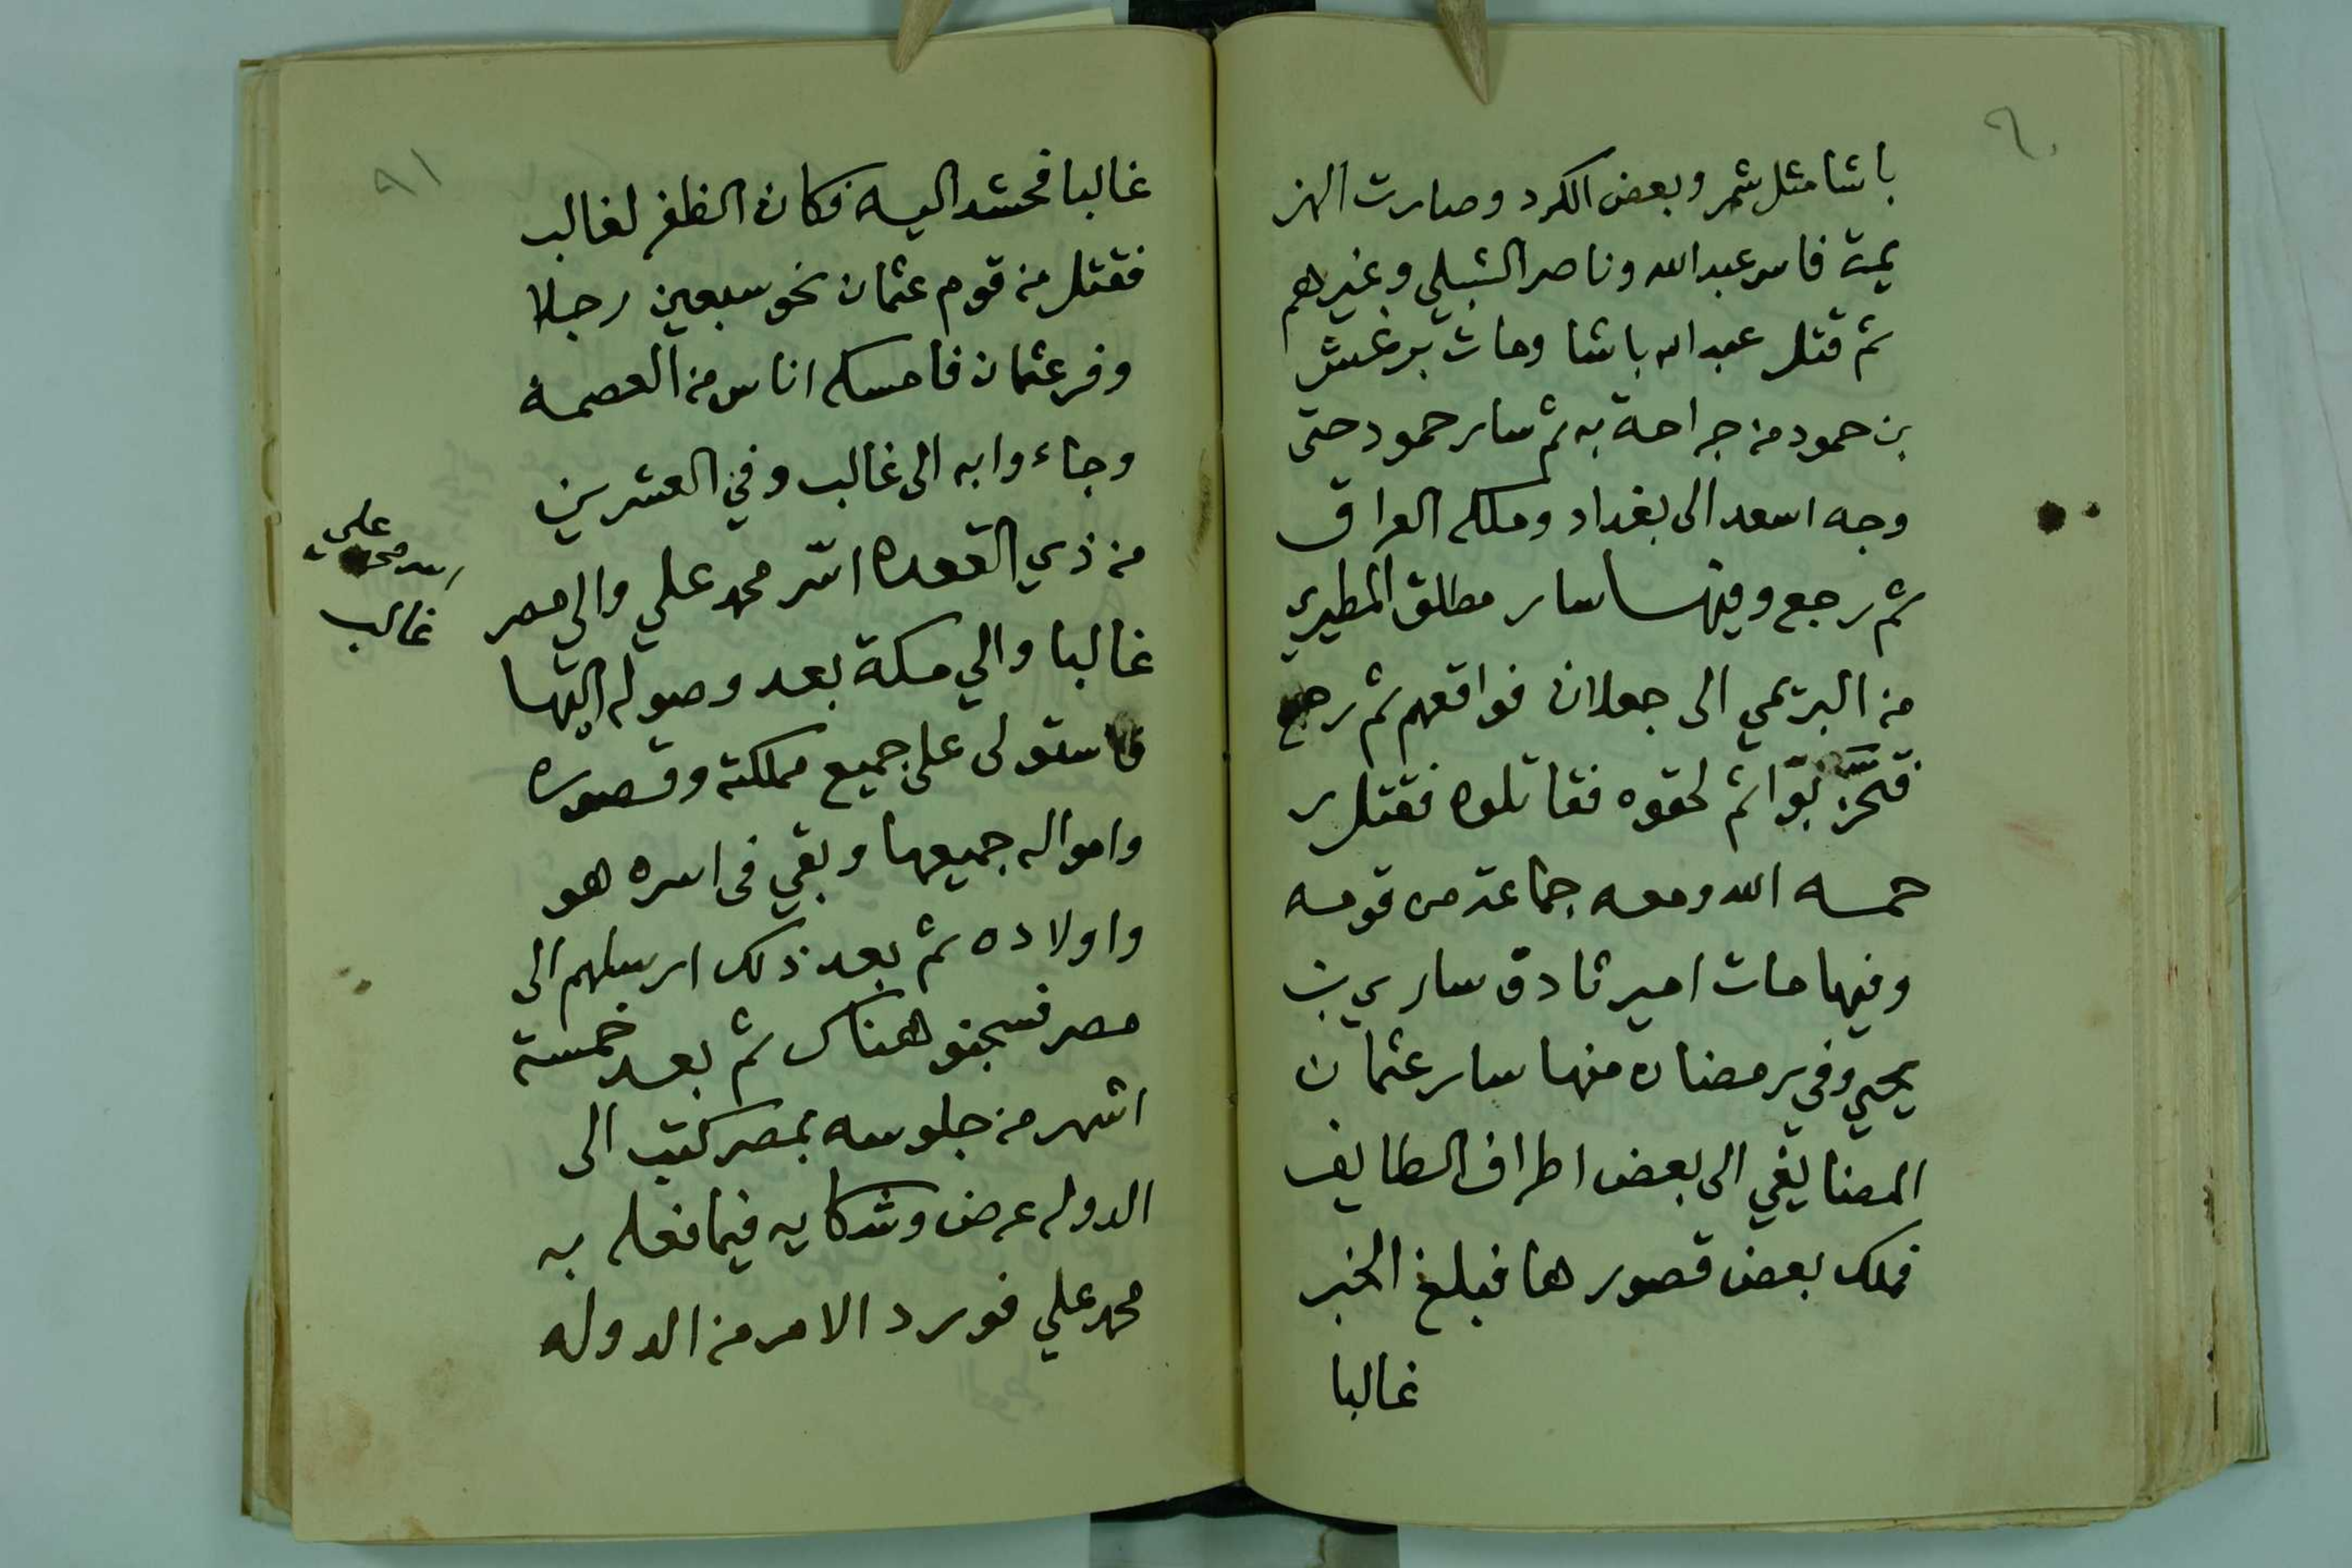 ٩٠
باشا مثل شمر وبعض الكرد وصارت الهز
يمة فاسر عبد الله وناصر الشبلي وغيرهم
ثم قتل عبد الله باشا ومات برغش
بن حمود من جراحة به ثم سار حمود حتى
وجه اسعد الى بغداد وملكه العراق
ثم رجع وفيها سار مطلق المطيري
من البريمي الى جعلان فواقعهم ثم رجع
ثم لحقوه فقاتلوه فقتل ر
حمه الله ومعه جماعة من قومه
وفيها مات امير ثادق ساري بن
يحيى وفي رمضان منها سار عثمان
المضايفي الى بعض اطراف الطايف
فملك بعض قصورها فبلغ الخبر
غالبا
٩١
غالبا فحشد اليه فكان الظفر لغالب
فقتل من قوم عثمان نحو سبعين رجلا
وفر عثمان فامسكه اناس من العصمة
وجاءوا به الى غالب وفي العشرين
من ذي القعده اسّر محمد علي والي مصر
غالبا والي مكة بعد وصوله اليها
فاستولى على جميع مملكته وقصوره
وامواله جميعها وبقي في اسره هو
واولاده ثم بعد ذلك ارسلهم الى
مصر فسجنو هناك ثم بعد خمسة
اشهر من جلوسه بمصر كتب الى
الدوله عرض وشكايه فيما فعله به
محمد علي فورد الامر من الدوله
علي
غالب